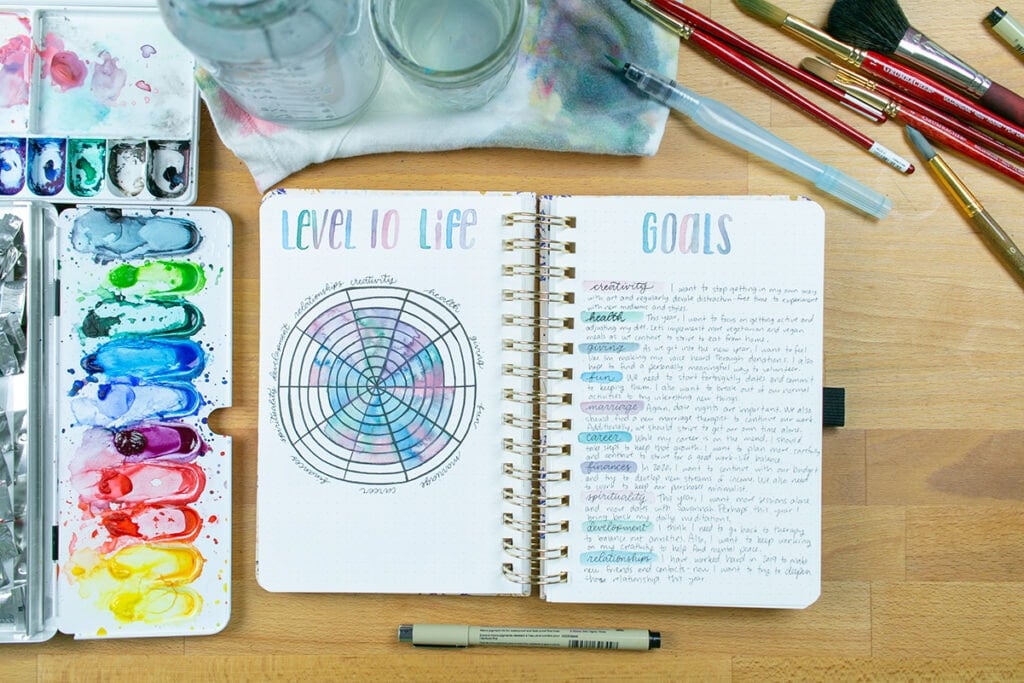 LEVEL 10 LIFE
creativity
health
giving
fun
marriage
career
finances
spirituality
development
relationships
GOALS
creativity I want to stop getting in my own way
with art and regularly devote distraction free time to experiment
with new mediums and styles.
health This year, I want to focus on getting active and
adjusting my diet. Let's implement more vegetarian and vegan
meals as we continue to strive to eat from home.
giving As we get into the new year, I want to feel
like I'm making my voice heard through donations. I also
hope to find a personally meaningful way to volunteer.
fun We need to start fortnightly dates and commit
to keeping them. I also want to break out of our normal
activities to try interesting new things.
marriage Again, date nights are important. We also
should find a new marriage therapist to continue our work.
Additionally, we should strive to get our own time alone.
career While my career is on the mend, I should
take steps to keep that growth. I want to plan more carefully
and continue to strive for a good work-life balance.
finances In 2020, I want to continue with our budget
and try to develop new streams of income. We also need
to work to keep our purchases minimalist.
spirituality This year, I want more sessions alone
and more dates with Savannah. Perhaps this year I
bring back my daily meditations.
development I think I need to go back to therapy
to balance out anxieties. Also, I want to keep working
on my creativity to help find mental peace.
relationships I have worked hard in 2019 to make
new friends and contacts - now I want to try to deepen
those relationships this year.
GRUMBACHER